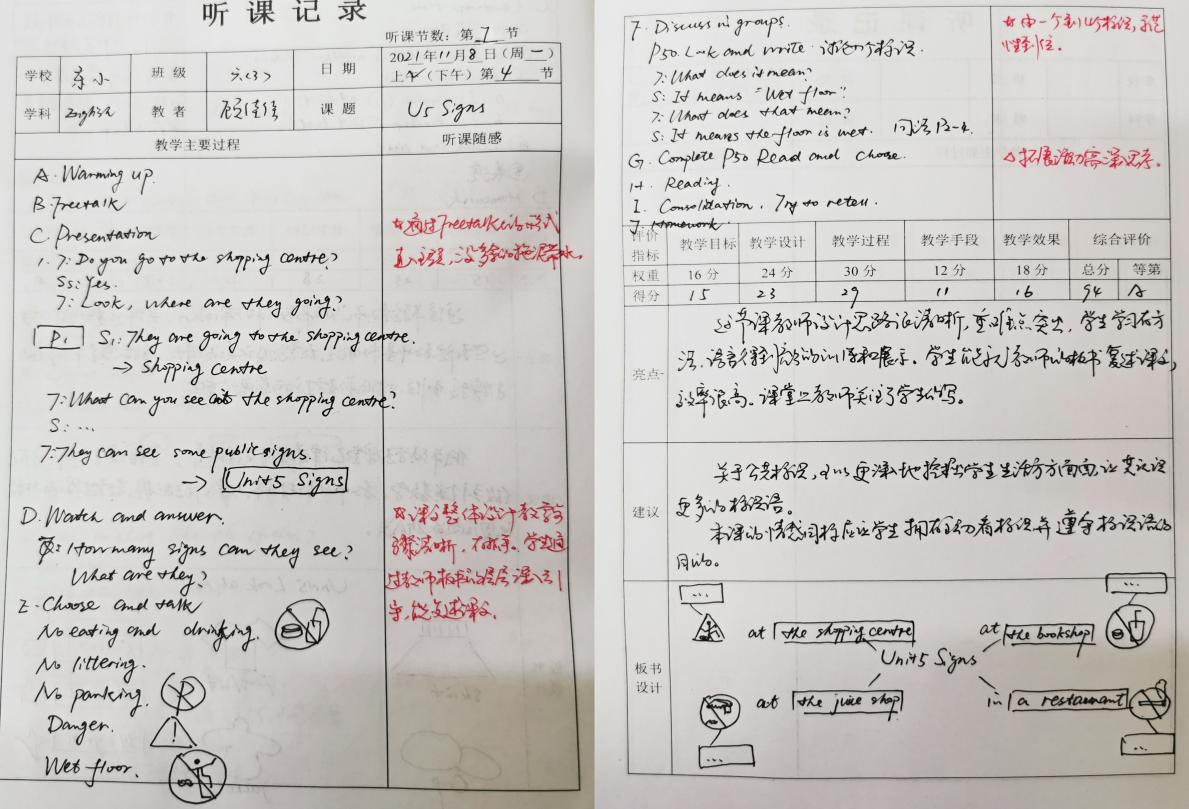 听课记录
听课节数：第 1 节
学校 东小 班级 六(3) 日期 2021年11月8日(周一)
上午(下午)第 4 节
学科 English 教者 顾佳佳 课题 U5 Signs
教学主要过程 听课随感
A. Warming up.
B. Freetalk
C. Presentation
1. T: Do you go to the shopping centre?
Ss: Yes.
T: Look, where are they going?
P1 S1: They are going to the shopping centre.
→ Shopping centre
T: What can you see at the shopping centre?
S: ...
T: They can see some public signs.
→ Unit 5 Signs
D. Watch and answer.
Q: How many signs can they see?
What are they?
E. Choose and talk
No eating and drinking.
No littering.
No parking.
Danger.
Wet floor.
☆通过Freetalk的形式
直入主题，没多余的拖泥带水。
☆课文整体设计教学步
骤清晰，学生通
过教师板书的层层深入引
导，能复述课文。
F. Discuss in groups.
P50. Look and write. 讨论 个标识。
T: What does it mean?
S: It means "Wet floor".
T: What does that mean?
S: It means the floor is wet. 同法 P2-4.
G. Complete P50 Read and choose.
H. Reading.
I. Consolidation. Try to retell.
J. Homework.
☆由一个到 个标识，
到位。
△拓展 需深思。
评价指标 教学目标 教学设计 教学过程 教学手段 教学效果 综合评价
权重 16分 24分 30分 12分 18分 总分 等第
得分 15 23 29 11 16 94 A
亮点
这节课教师设计思路 清晰，重难点突出，学生学习有方
法，语言得到 的训练和展示。学生能 教师的板书复述课文，
效率很高。课堂上教师关注了学生 写。
建议
关于公共标识，可以更深地挖掘学生生活方方面面，让
更多的标识语。
本课的情感 学生 看标识并遵守标识语的
目的。
板书设计
...
...
at the shopping centre
at the bookshop
Unit 5 Signs
at the juice shop
in a restaurant
...
...